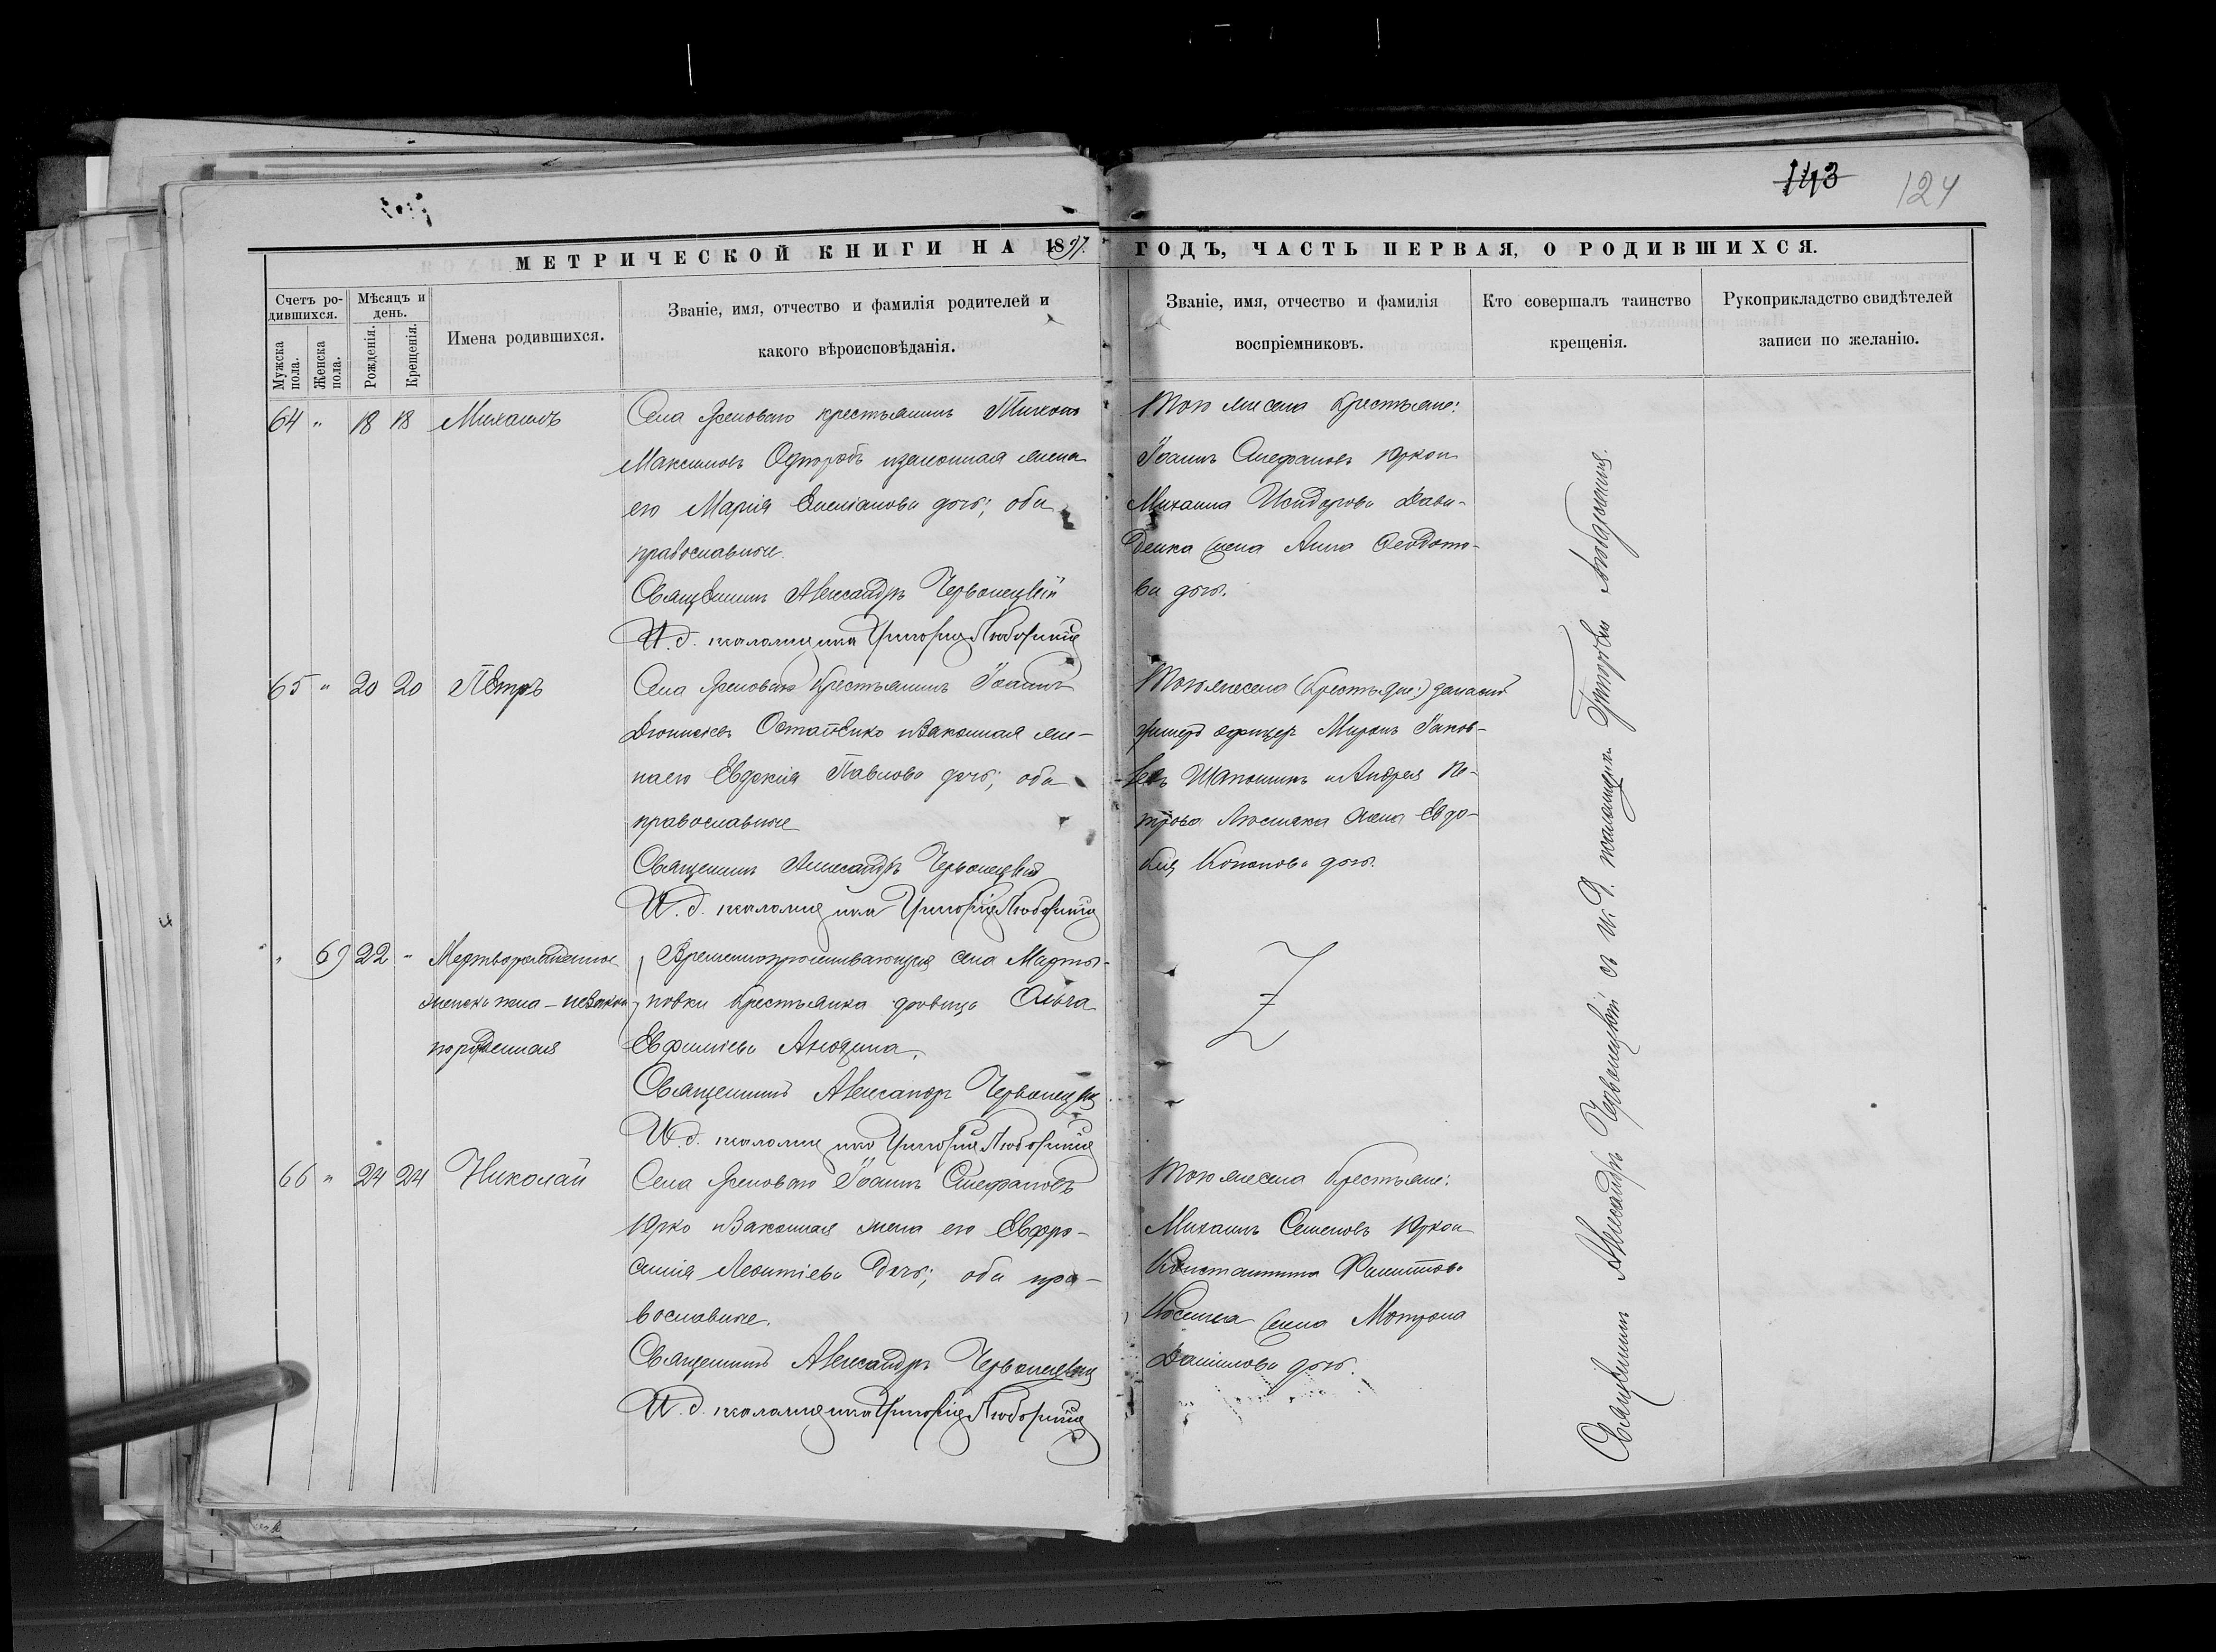 143 124
МЕТРИЧЕСКОЙ КНИГИ НА 1897. ГОДЪ, ЧАСТЬ ПЕРВАЯ, О РОДИВШИХСЯ.
Счетъ ро-
дившихся.
Мужска пола.
Женска пола.
Мѣсяцъ и
день.
Рожденія.
Крещенія.
Имена родившихся.
Званіе, имя, отчество и фамилія родителей и
какого вѣроисповѣданія.
Званіе, имя, отчество и фамилія
воспріемниковъ.
Кто совершалъ таинство
крещенія.
Рукоприкладство свидѣтелей
записи по желанію.
64 " 18 18 Михаилъ
Села крестьянинъ Тихонъ
Максимовъ и законная жена
его Марія Емеліанова дочь; оба
православные.
Священникъ Александръ Червонецкій
И. д. псаломщика Григорій
Того же села крестьяне:
Іоаннъ Стефановъ Юрко и
Михаила Исидорова Дави-
денка жена Анна Феодото-
ва дочь.
65 " 20 20 Петръ
Села крестьянинъ Іоаннъ
Діонисіевъ Остапенко и законная же-
на его Евдокія Павлова дочь; оба
православные
Священникъ Александръ Червонецкій
И. д. псаломщика Григорій
Того же села (крестьяне:) запасный
унтеръ офицеръ Миронъ Іаков-
левъ и Андрея Пе-
трова жена Евдо-
кія Кононова дочь.
" 69 22 " Мертворожденное
женска пола – незакон-
норожденная
Временнопроживающая села Марты-
новки крестьянка вдовица Ольга
Евфиміева
Священникъ Александръ Червонецкій
И. д. псаломщика Григорій
Z
66 " 24 24 Николай
Села Іоаннъ Стефановъ
Юрко и законная жена его Евфро-
синія Леонтіева дочь; оба пра-
вославные.
Священникъ Александръ Червонецкій
И. д. псаломщика Григорій
Того же села крестьяне:
Михаилъ Семеновъ Юрко и
Константина Филиппова
жена Мотрона
Даніилова дочь.
Священникъ Александръ Червонецкій съ и. д. псаломщика